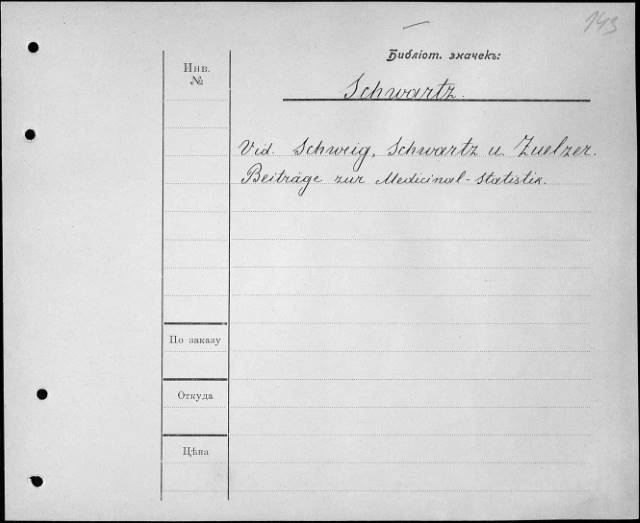 143
Библіот. значекъ:
Инв.
№
Schwartz.
Vid. Schweig, Schwartz u. Zuelzer.
Beiträge zur Medicinal-Statistik.
По заказу
Откуда
Цѣна